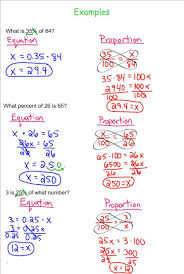 Examples
What is 35% of 84?
Equation
x = 0.35 · 84
x = 29.4
Proportion
35/100 = x/84
35 · 84 = 100x
2940 = 100x
100 100
29.4 = x
What percent of 26 is 65?
Equation
x · 26 = 65
26x = 65
26 26
x = 2.50
250 = x
Proportion
x/100 = 65/26
65 · 100 = 26x
6500 = 26x
26 26
250 = x
3 is 25% of what number?
Equation
3 = 0.25 · x
3 = 0.25x
0.25 0.25
12 = x
Proportion
25/100 = 3/x
25x = 3 · 100
25x = 300
25 25
x = 12